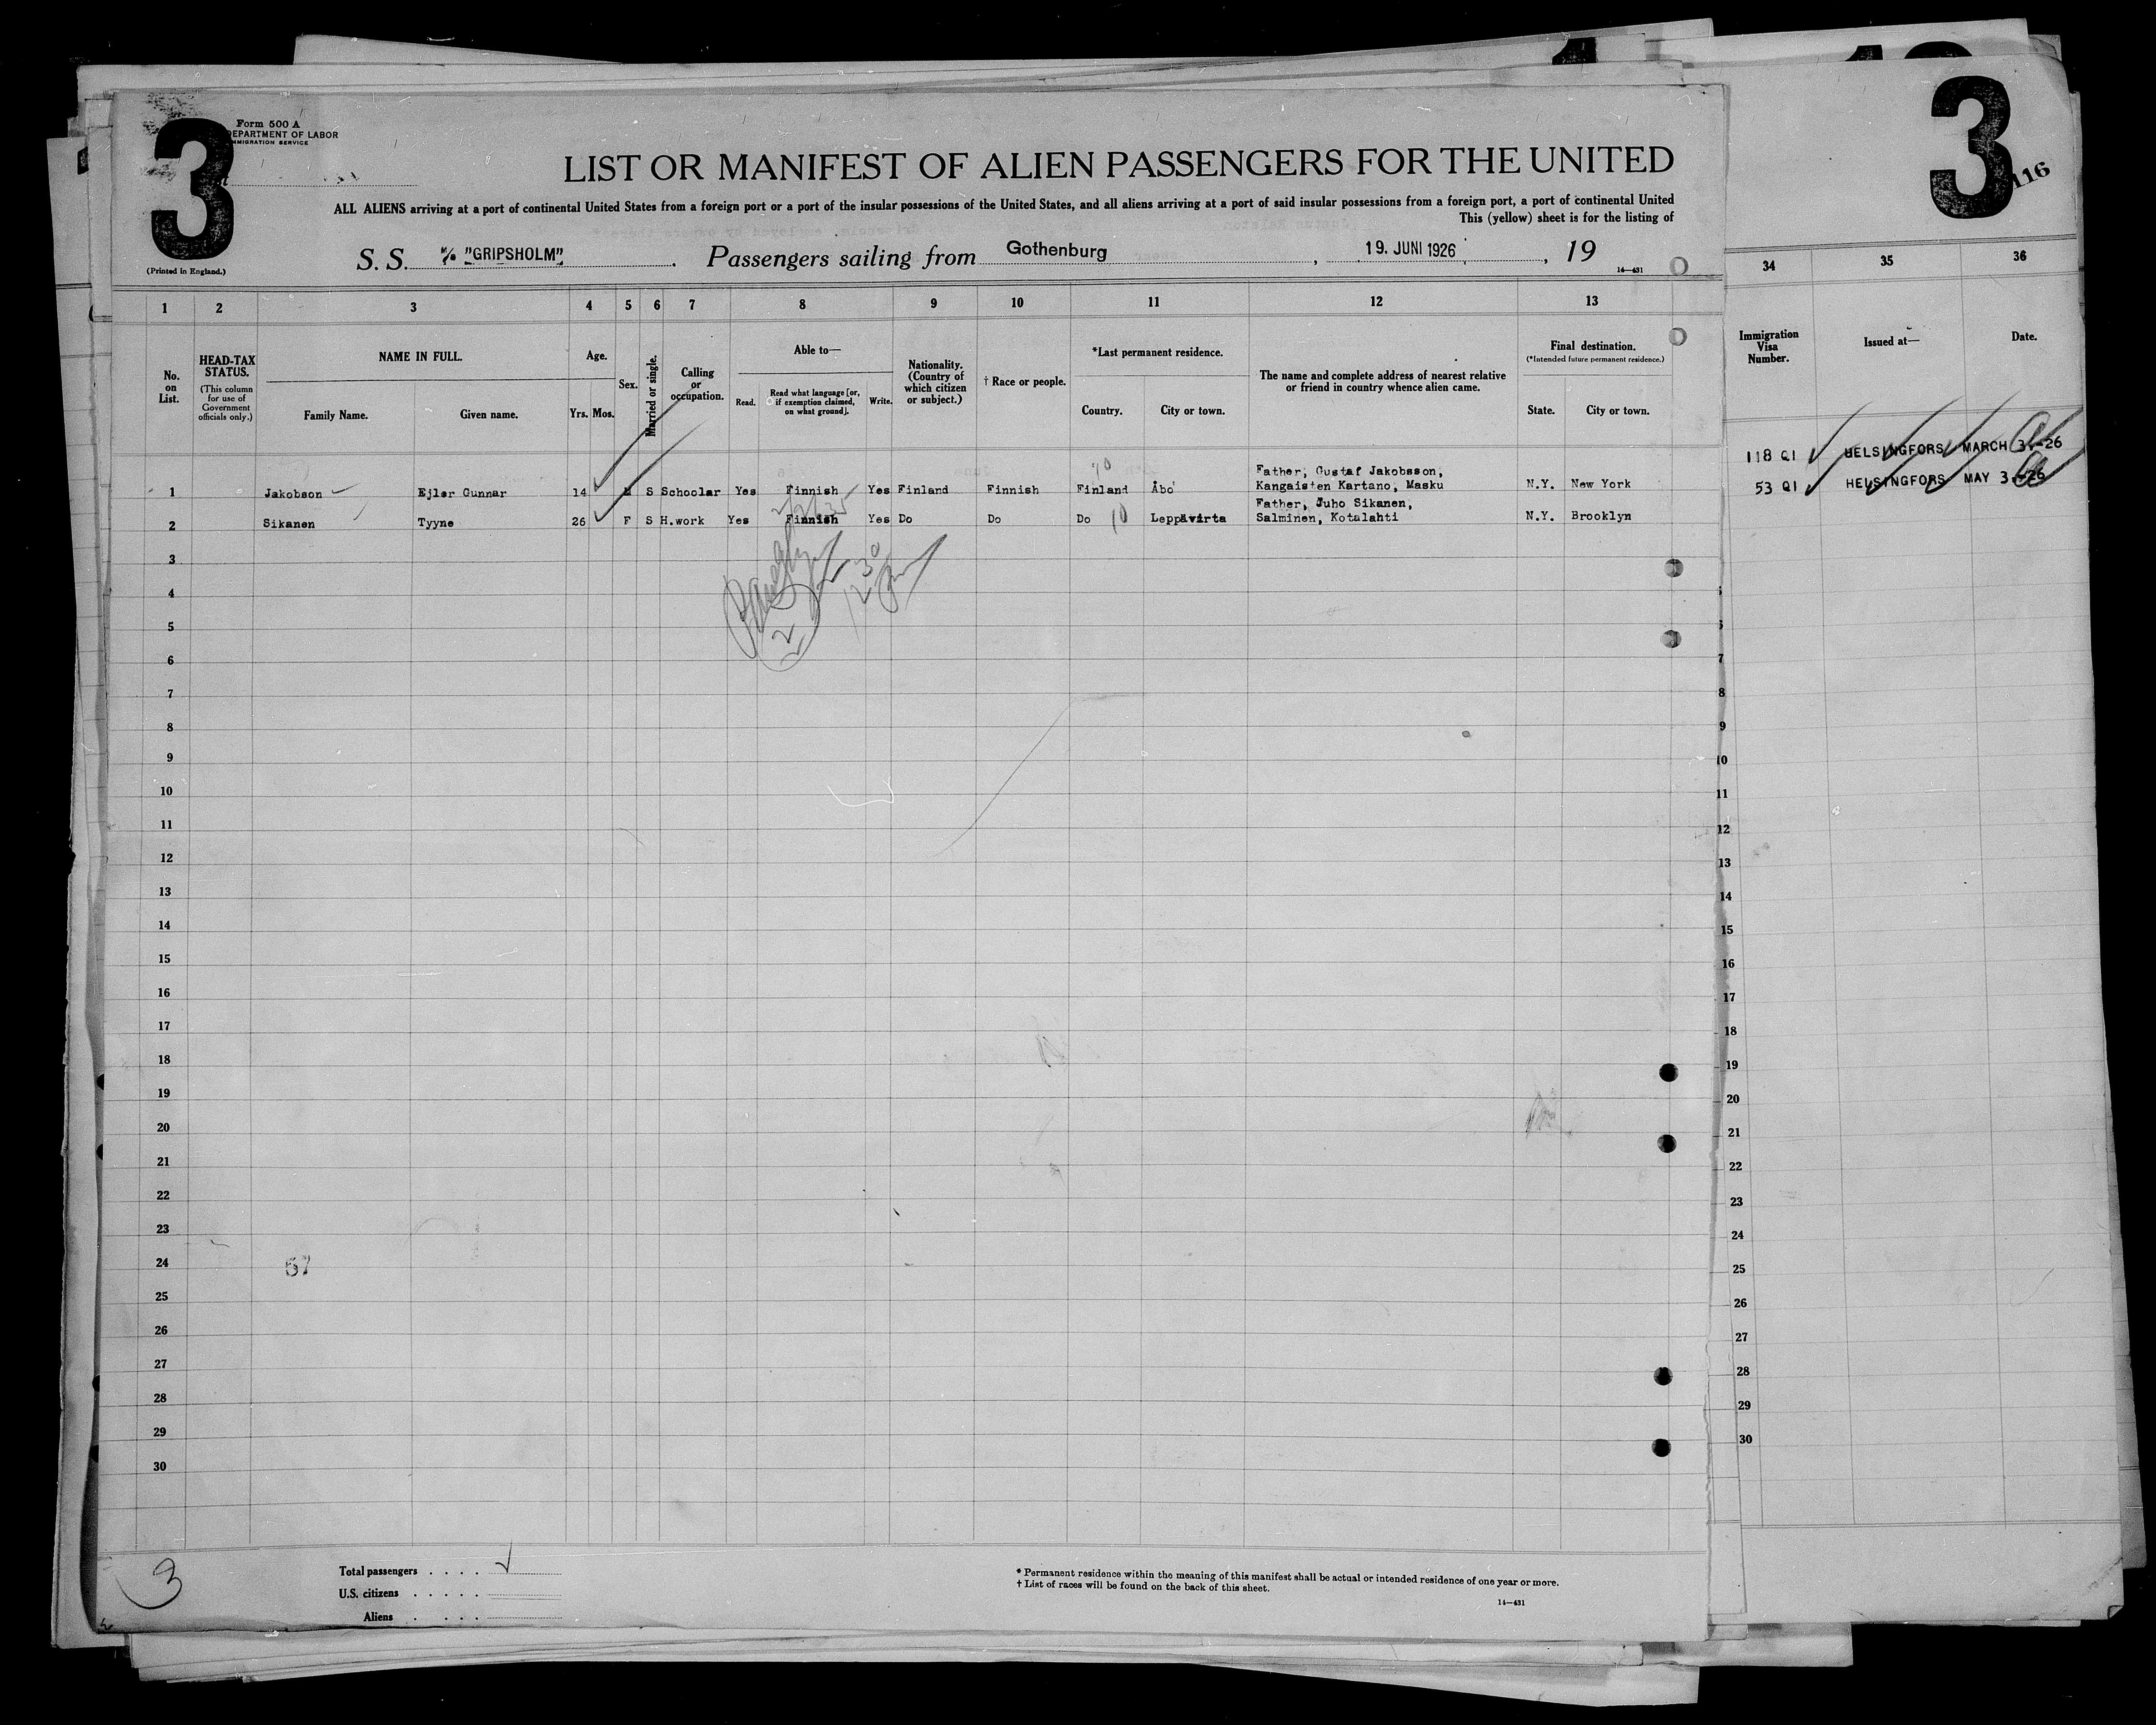 3
Form 500 A
DEPARTMENT OF LABOR
IMMIGRATION SERVICE
3
116
LIST OR MANIFEST OF ALIEN PASSENGERS FOR THE UNITED
ALL ALIENS arriving at a port of continental United States from a foreign port or a port of the insular possessions of the United States, and all aliens arriving at a port of said insular possessions from a foreign port, a port of continental United
This (yellow) sheet is for the listing of
S. S. M/S "GRIPSHOLM" . Passengers sailing from Gothenburg , 19. JUNI 1926 , 19
(Printed in England.)
14—431
1 2 3 4 5 6 7 8 9 10 11 12 13 34 35 36
No. on List.
HEAD-TAX STATUS.
(This column for use of Government officials only.)
NAME IN FULL.
Family Name. Given name.
Age.
Yrs. Mos.
Sex.
Married or single.
Calling or occupation.
Able to—
Read. Read what language [or, if exemption claimed, on what ground]. Write.
Nationality. (Country of which citizen or subject.)
† Race or people.
*Last permanent residence.
Country. City or town.
The name and complete address of nearest relative or friend in country whence alien came.
Final destination.
(*Intended future permanent residence.)
State. City or town.
Immigration Visa Number.
Issued at—
Date.
1 Jakobson Ejler Gunnar 14 M S Schoolar Yes Finnish Yes Finland Finnish Finland Åbo Father, Gustaf Jakobsson, Kangaisten Kartano, Masku N.Y. New York
118 QI HELSINGFORS MARCH 3.-26
2 Sikanen Tyyne 26 F S H.work Yes Finnish Yes Do Do Do 10 Leppävirta Father, Juho Sikanen, Salminen, Kotalahti N.Y. Brooklyn
53 QI HELSINGFORS MAY 3.-26
2
3
4
5
6
7
8
9
10
11
12
13
14
15
16
17
18
19
20
21
22
23
24
57
25
26
27
28
29
30
7
8
9
10
11
12
13
14
15
16
17
18
19
20
21
22
23
24
25
26
27
28
29
30
3
Total passengers . . . .
U.S. citizens . . . . .
Aliens . . . .
* Permanent residence within the meaning of this manifest shall be actual or intended residence of one year or more.
† List of races will be found on the back of this sheet.
14—431